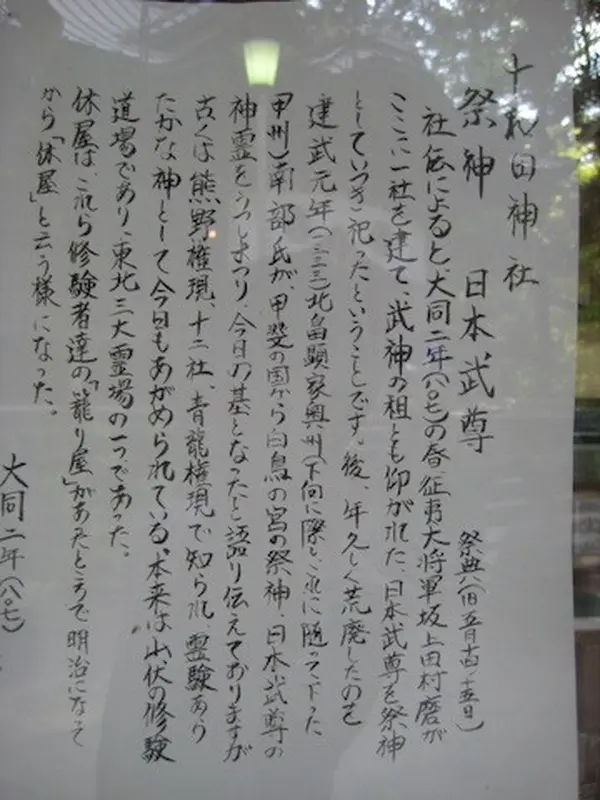 十和田神社
祭神　日本武尊　祭典(旧五月十四・十五日)
社伝によると、大同二年(八〇七)の春、征夷大将軍坂上田村磨が
ここに一社を建て、武神の祖とも仰がれた、日本武尊を祭神
としていつき祀ったということです。後、年久しく荒廃したのを
建武元年(一三三三)北畠顕家奥州(下向に際し、これに随って下った
甲州)南部氏が、甲斐の国から白鳥の宮の祭神、日本武尊の
神霊をうつしまつり、今日の基となったと語り伝えておりますが
古くは熊野権現、十二社、青龍権現で知られ、霊験あら
たかな神として今日もあがめられている。本来は山伏の修験
道場であり、東北三大霊場の一つであった。
休屋は、これら修験者達の「籠り屋」があったところで明治になって
から「休屋」と云う様になった。
大同二年(八〇七)